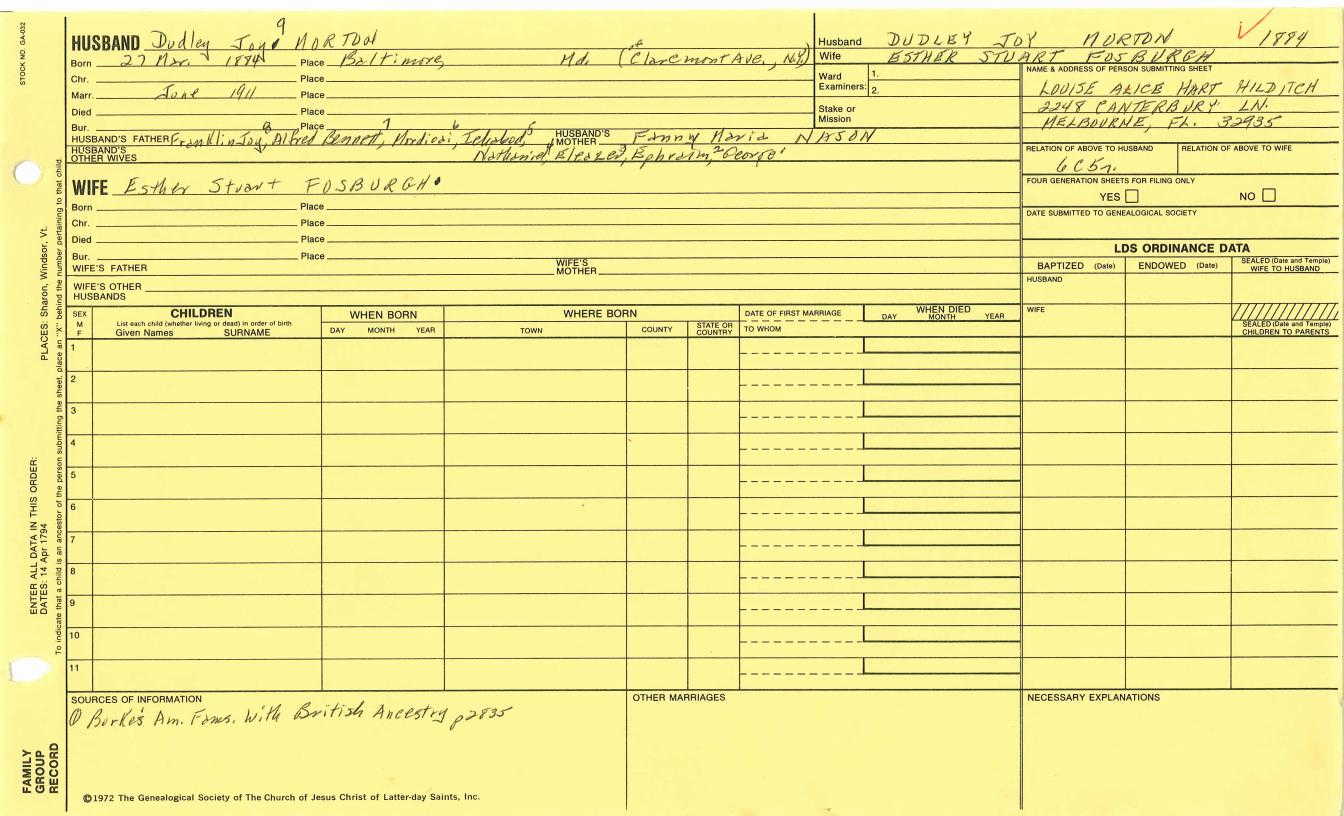 STOCK NO. GA-032
9
HUSBAND Dudley Joy MORTON
Born 27 Mar. 1884 Place Baltimore, Md. (of Claremont Ave., N.Y.)
Chr. Place
Marr. June 1911 Place
Died Place
Bur. Place
HUSBAND'S FATHER Franklin Joy,8 Alfred Bennett,7 Mordicai,6 Ichabod,5 HUSBAND'S MOTHER Fanny Maria NASON
HUSBAND'S OTHER WIVES Nathaniel,4 Eleazer,3 Ephraim,2 George1
WIFE Esther Stuart FOSBURGH
Born Place
Chr. Place
Died Place
Bur. Place
WIFE'S FATHER WIFE'S MOTHER
WIFE'S OTHER HUSBANDS
Husband DUDLEY JOY MORTON 1884
Wife ESTHER STUART FOSBURGH
Ward Examiners: 1.
2.
Stake or Mission
NAME & ADDRESS OF PERSON SUBMITTING SHEET
LOUISE ALICE HART HILDITCH
2248 CANTERBURY LN.
MELBOURNE, FL. 32935
RELATION OF ABOVE TO HUSBAND RELATION OF ABOVE TO WIFE
6C5r.
FOUR GENERATION SHEETS FOR FILING ONLY
YES NO
DATE SUBMITTED TO GENEALOGICAL SOCIETY
LDS ORDINANCE DATA
BAPTIZED (Date) ENDOWED (Date) SEALED (Date and Temple) WIFE TO HUSBAND
HUSBAND
WIFE
SEALED (Date and Temple) CHILDREN TO PARENTS
SEX M F CHILDREN WHEN BORN WHERE BORN DATE OF FIRST MARRIAGE WHEN DIED
List each child (whether living or dead) in order of birth
Given Names SURNAME DAY MONTH YEAR TOWN COUNTY STATE OR COUNTRY TO WHOM DAY MONTH YEAR
1
2
3
4
5
6
7
8
9
10
11
SOURCES OF INFORMATION OTHER MARRIAGES NECESSARY EXPLANATIONS
① Burke's Am. Fams. With British Ancestry p2835
©1972 The Genealogical Society of The Church of Jesus Christ of Latter-day Saints, Inc.
FAMILY GROUP RECORD
ENTER ALL DATA IN THIS ORDER:
DATES: 14 Apr 1794
PLACES: Sharon, Windsor, Vt.
To indicate that a child is an ancestor of the person submitting the sheet, place an "X" behind the number pertaining to that child.